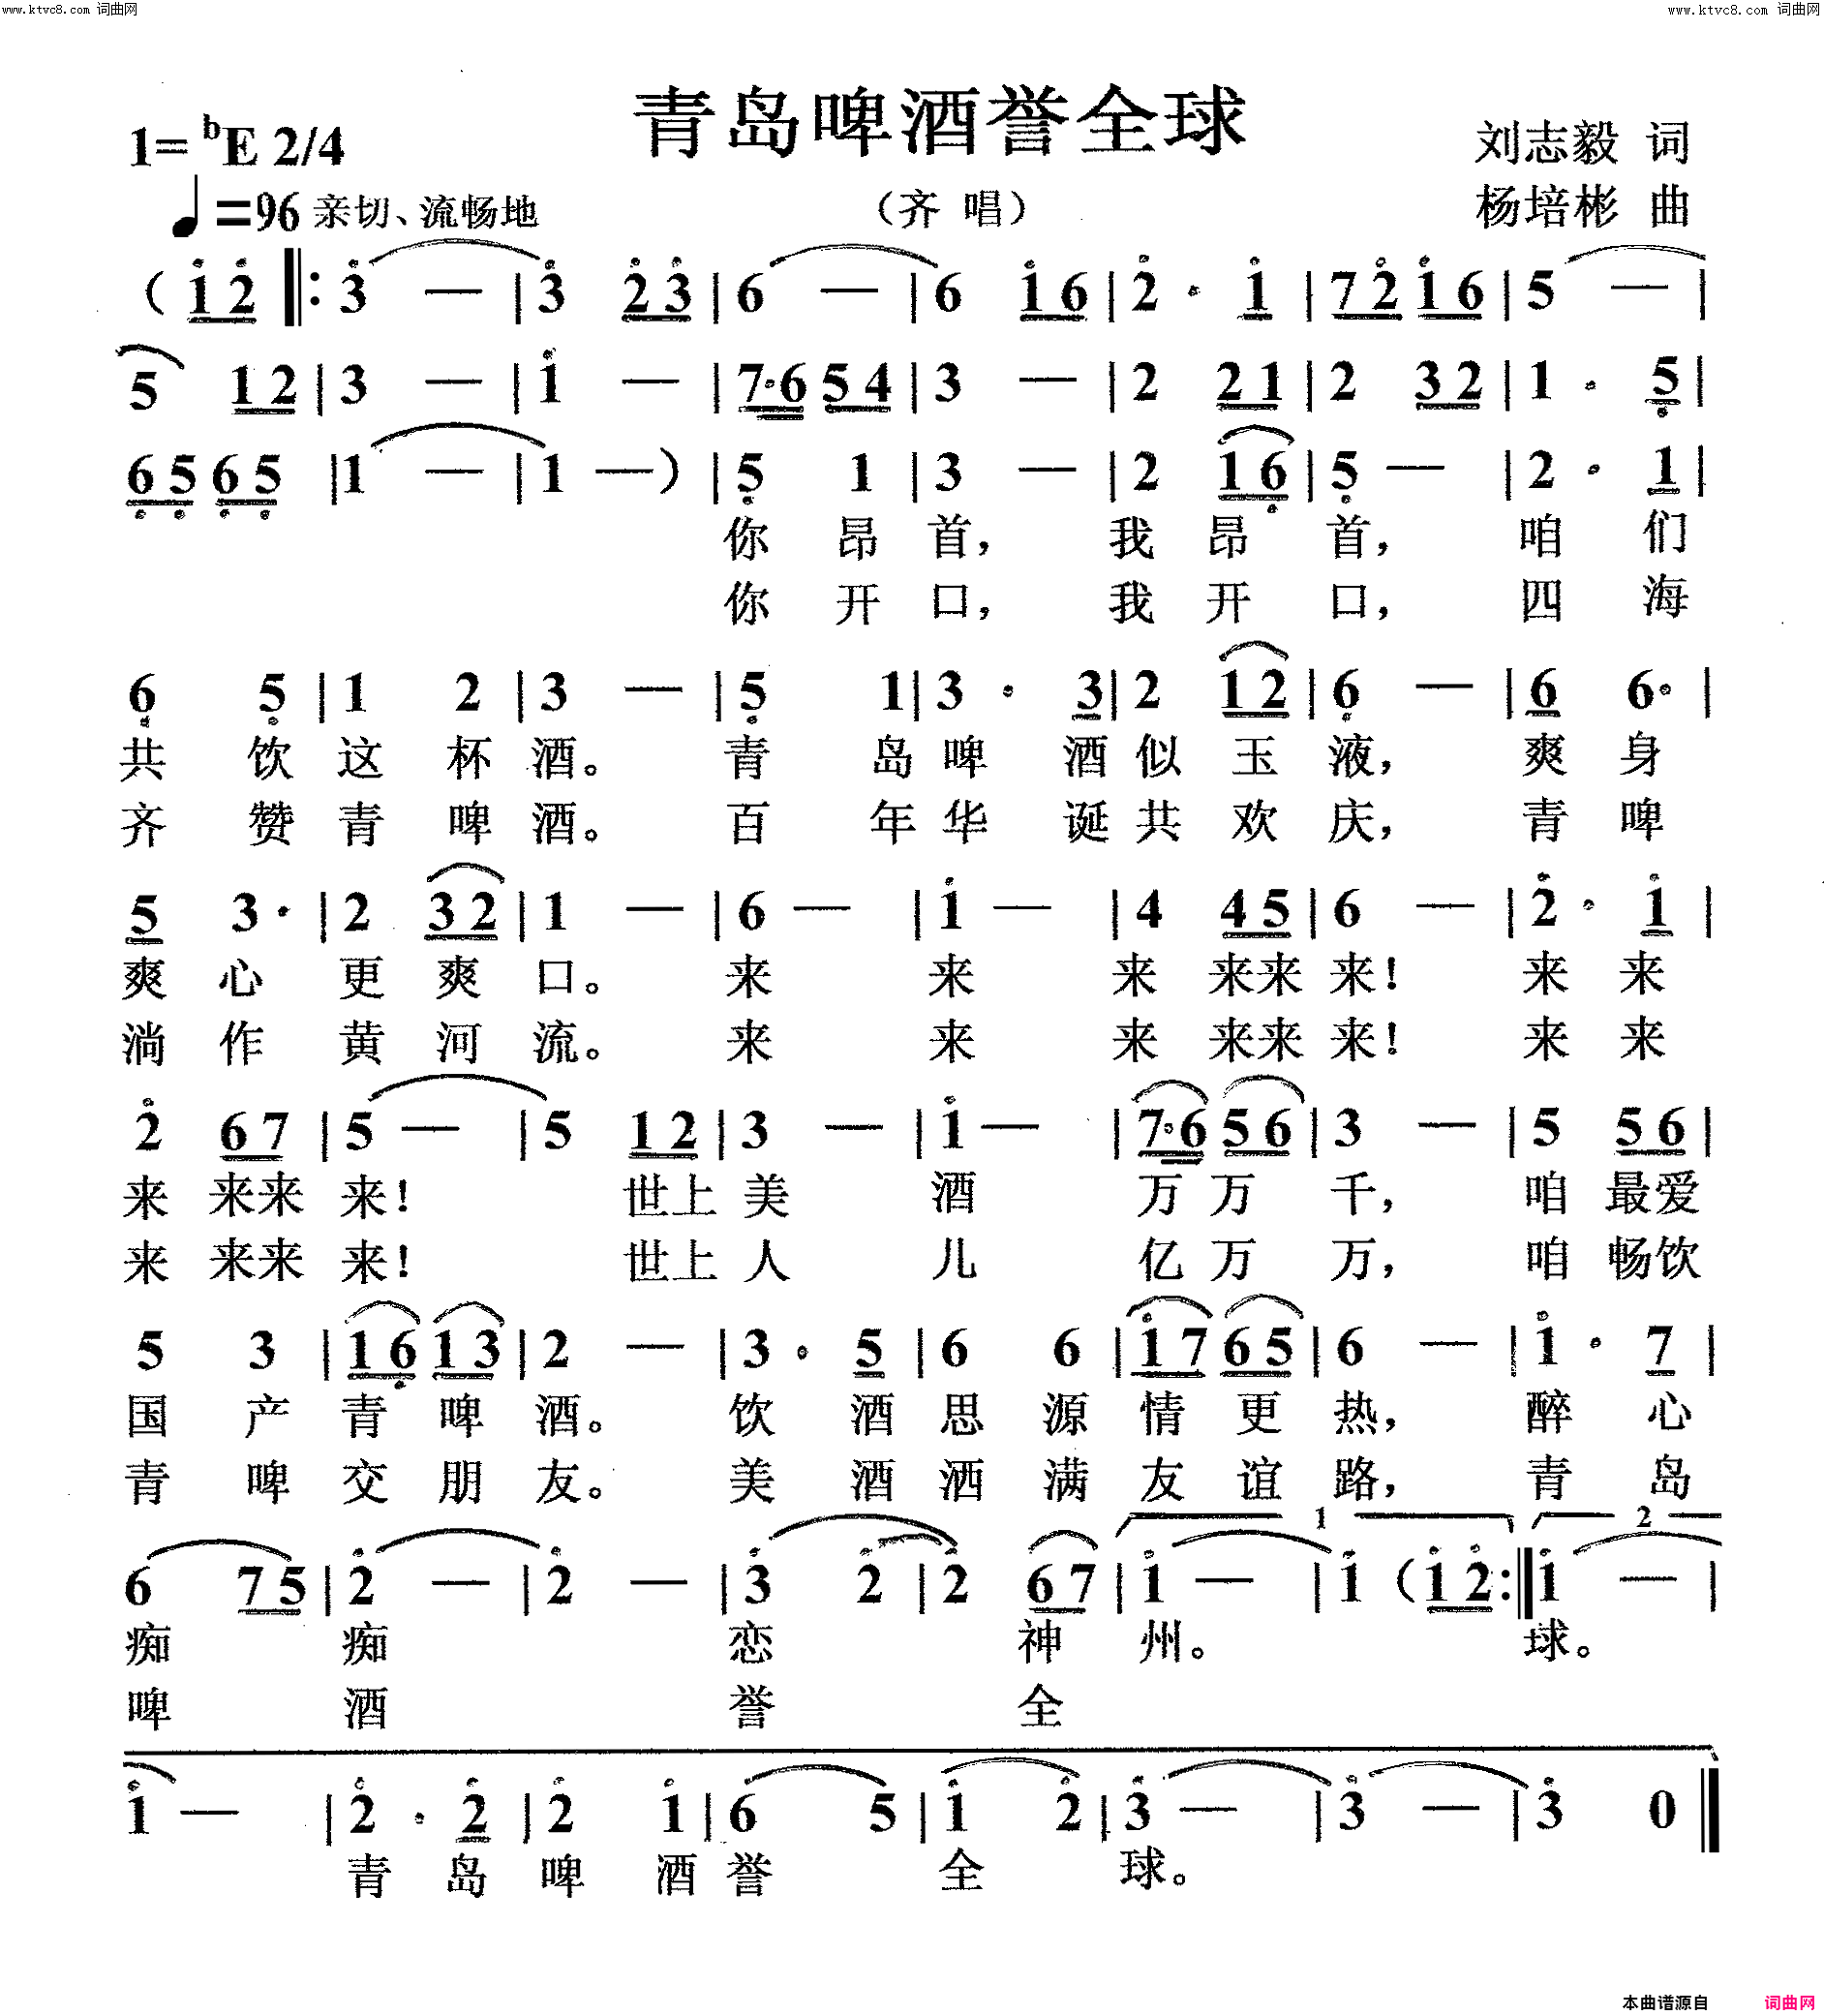 www.ktvc8.com 词曲网 www.ktvc8.com 词曲网
青岛啤酒誉全球
1= bE 2/4 刘志毅 词
♩=96 亲切、流畅地 （齐 唱） 杨培彬 曲
（1̇ 2̇ ‖: 3̇ — | 3̇ 2̇ 3̇ | 6 — | 6 1̇ 6 | 2̇ · 1̇ | 7 2̇ 1̇ 6 | 5 — |
5 1 2 | 3 — | 1̇ — | 7·6 5 4 | 3 — | 2 2 1 | 2 3 2 | 1 · 5̣ |
6̣ 5̣ 6̣ 5̣ | 1 — | 1 —） | 5̣ 1 | 3 — | 2 1 6̣ | 5̣ — | 2 · 1 |
你 昂 首， 我 昂 首， 咱 们
你 开 口， 我 开 口， 四 海
6̣ 5̣ | 1 2 | 3 — | 5̣ 1 | 3 · 3 | 2 1 2 | 6̣ — | 6 6· |
共 饮 这 杯 酒。 青 岛 啤 酒 似 玉 液， 爽 身
齐 赞 青 啤 酒。 百 年 华 诞 共 欢 庆， 青 啤
5 3· | 2 3 2 | 1 — | 6 — | 1̇ — | 4 4 5 | 6 — | 2̇ · 1̇ |
爽 心 更 爽 口。 来 来 来 来来 来！ 来 来
淌 作 黄 河 流。 来 来 来 来来 来！ 来 来
2̇ 6 7 | 5 — | 5 1 2 | 3 — | 1̇ — | 7·6 5 6 | 3 — | 5 5 6 |
来 来来 来！ 世上 美 酒 万 万 千， 咱 最爱
来 来来 来！ 世上 人 儿 亿 万 万， 咱 畅饮
5 3 | 1 6̣ 1 3 | 2 — | 3 · 5 | 6 6 | 1̇ 7 6 5 | 6 — | 1̇ · 7 |
国 产 青 啤 酒。 饮 酒 思 源 情 更 热， 醉 心
青 啤 交 朋 友。 美 酒 洒 满 友 谊 路， 青 岛
1 2
6 7 5 | 2̇ — | 2̇ — | 3̇ 2̇ | 2̇ 6 7 | 1̇ — | 1̇ （1̇ 2̇ :‖ 1̇ — |
痴 痴 恋 神 州。 球。
啤 酒 誉 全
1̇ — | 2̇ · 2̇ | 2̇ 1̇ | 6 5 | 1̇ 2̇ | 3̇ — | 3̇ — | 3̇ 0 ‖
青 岛 啤 酒 誉 全 球。
本曲谱源自 词曲网